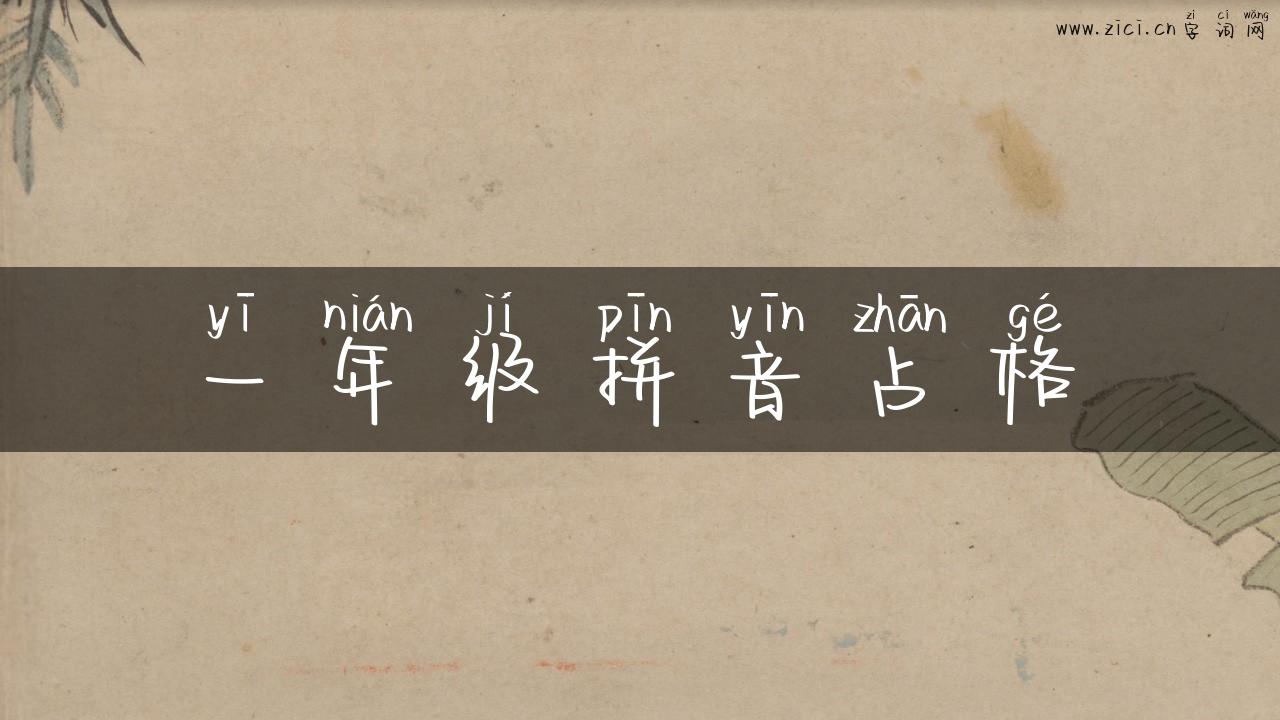 zì cí wǎng
www.zici.cn 字词网
yī nián jí pīn yīn zhān gé
一年级拼音占格